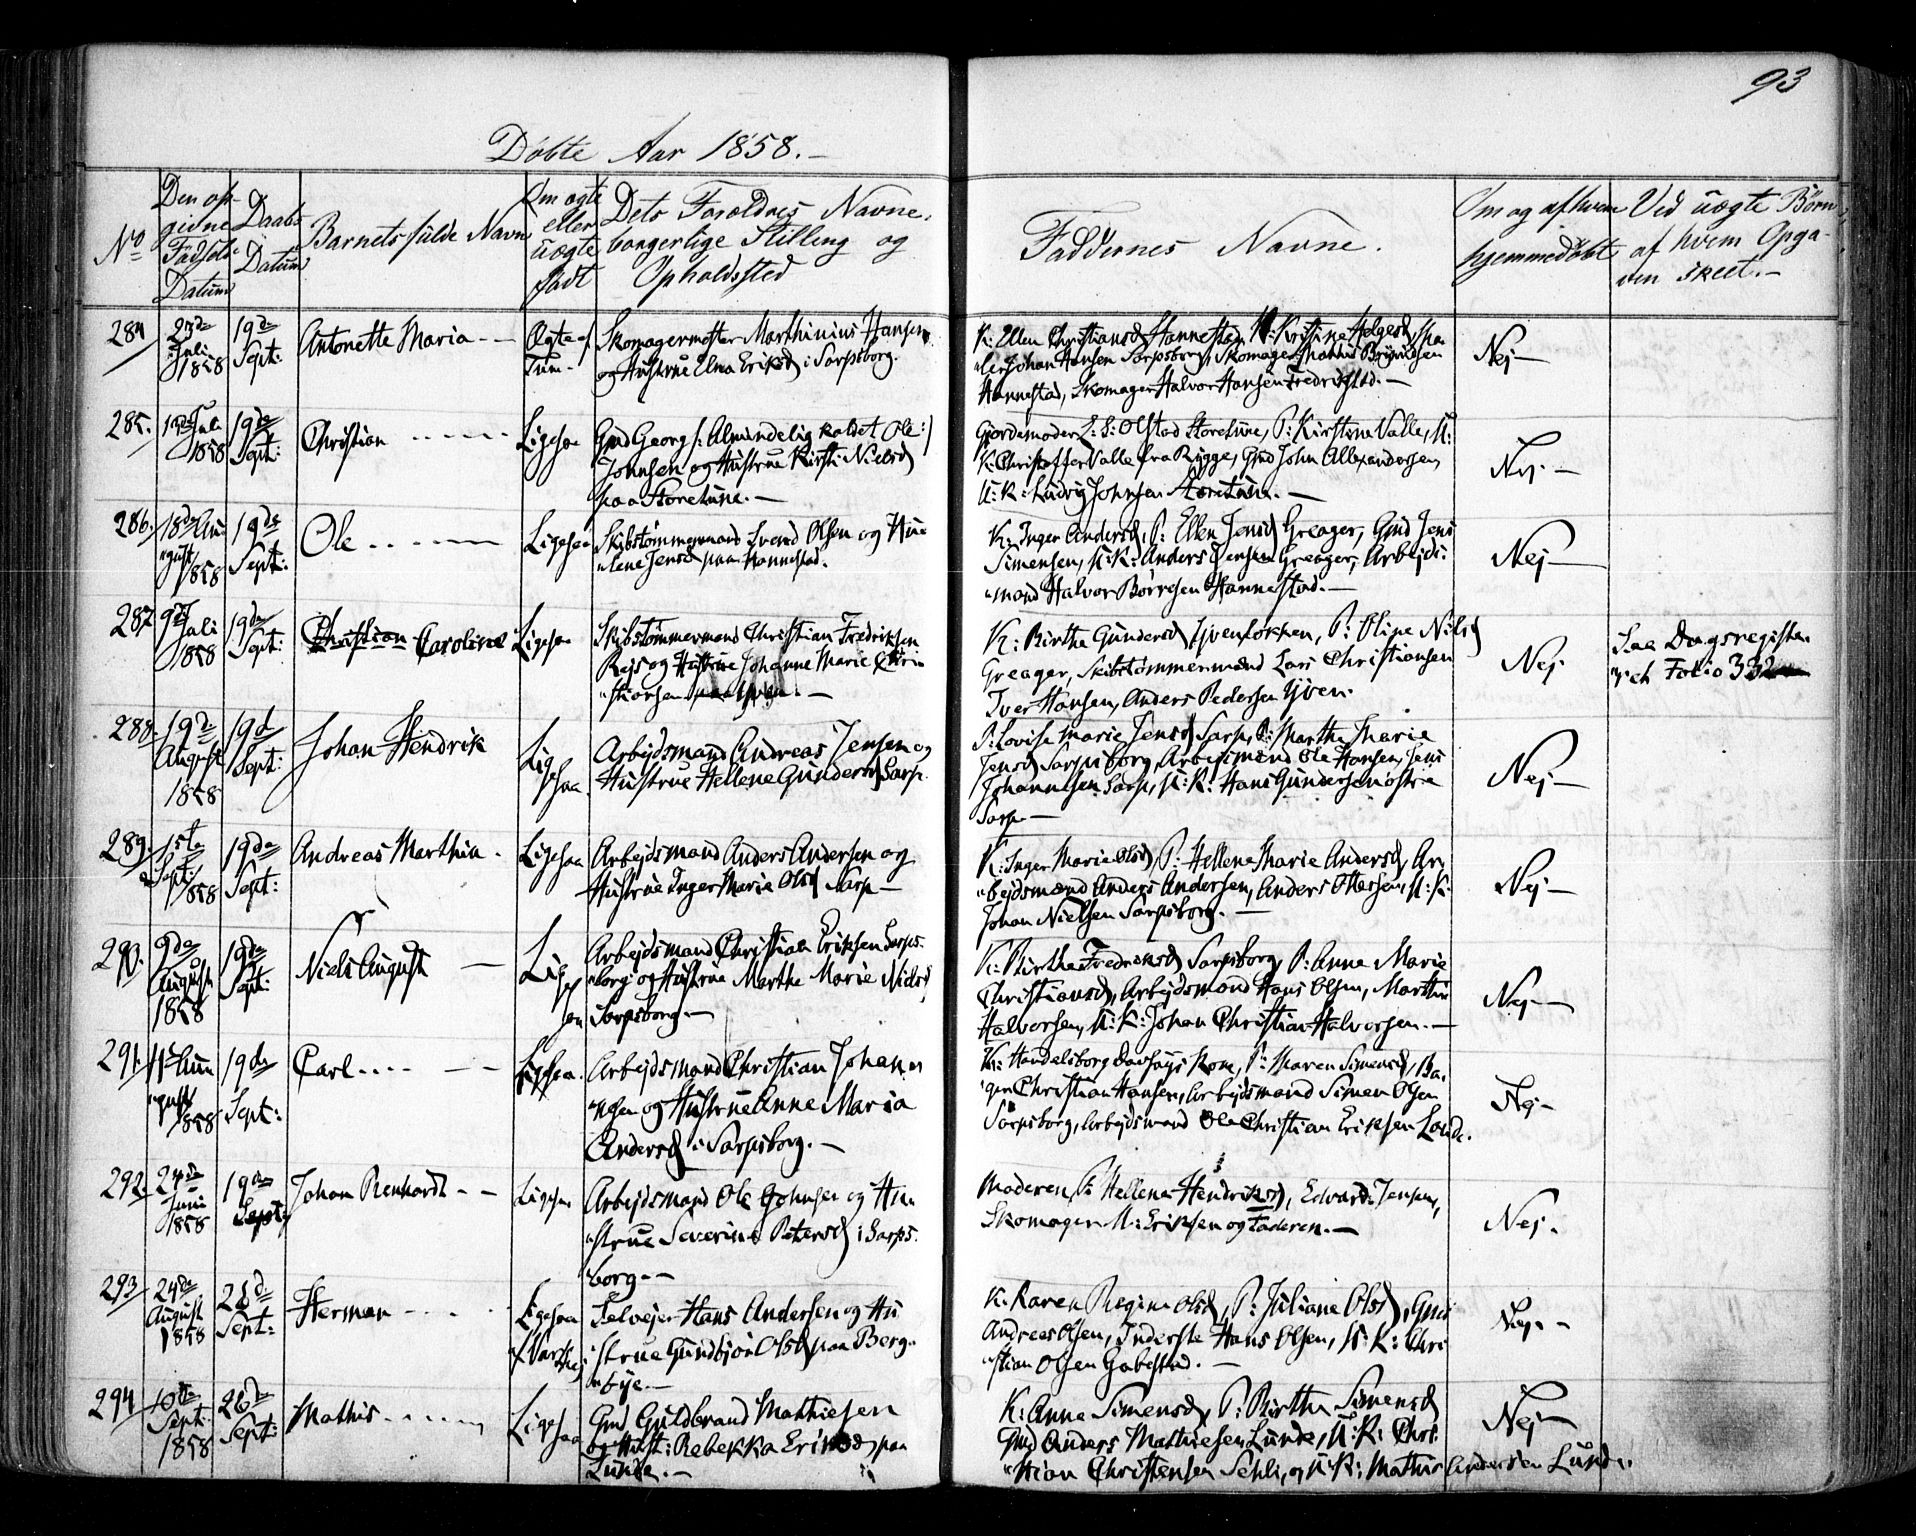 93
Döbte Aar 1858.
No
Den op-
givne
Fødsels
Datum
Daabs
Datum
Barnets fulde Navn
Om ægte
eller
uægte
født
Dets Forældres Navne,
borgerlige Stilling og
Opholdssted
Faddernes Navne.
Om og af hvem
hjemmedøbt
Ved uægte Børn
af hvem Opga-
ven skeet.
284
23de
Juli
1858
19de
Sept:
Antonette Maria
Ægte
Tum.
Skomagermester Marthinius Hansen
og Hustrue Elena Eriksd i Sarpsborg.
K: Ellen Christiansd Hannestad, K: Kristine Helgesd, Ma-
ler Johan Hansen Sarpsborg, Skomager Mathis Brynildsen
Hannestad, Skomager Halvor Hansen Fredrichstad.
Nej
285.
13de Juli
1858
19de
Sept:
Christian
Ligesaa
Gmd Georg /: Almindelig kaldet Ole :/
Johnsen og Hustrue Kirsti Nielsd
paa Storetune.
Gjordemoder L: S: Olstad Storetune, P: Kirstine Valle, U:
K: Christoffer Valle fra Rygge, Gmd John Allexandersen,
U: K: Ludvig Johnsen Storetune.
Nej.
286.
18de Au
gust
1858
19de
Sept:
Ole
Ligesaa
Skibstømmermand Svend Olsen og Hue
Lene Jensd paa Hannestad.
K: Inger Andersd, P: Ellen Jensd Greager, Gmd Jens
Simensen, U: K: Anders Jensen Greager, Arbejds-
mand Halvor Børresen Hannestad.
Nej
287
9de Juli
1858
19de
Sept:
Christian Caroline
Ligesaa
Skibstømmermand Christian Fredriksen
Rejs og Hustrue Johanne Marie Chri-
stiansen paa Yven.
K: Birthe Gundersd Yvenløkken, P: Oline Nilsd
Greager, Skibstømmermand Lars Christiansen
Iver Hansen, Anders Pedersen Yven.
Nej
See Dagsregiste-
ret Folio 332
288.
19de
August
1858
19d
Sept:
Johan Hendrik
Lige
saa
Arbejdsmand Andreas Jensen og
Hustrue Hellene Gundersd Sarp.
P: Lovise Marie Jensd Sarp, P: Marthe Marie
Jensd Sarpsborg, Arbejdsmand Ole Hansen, Jens
Johannesen Sarp, U: K: Hans Gundersen østre
Sarp
Nej
289.
1ste
Sept:
1858
19de
Sept:
Andreas Marthin
Ligesaa
Arbejdsmand Anders Andersen og
Hustrue Inger Marie Olsd Sarp
K: Inger Marie Olsd, P: Hellene Marie Andersd, Ar-
bejdsmand Anders Andersen, Anders Ottersen, U: K:
Johan Nielsen Sarpsborg.
Nej
290.
9de
August
1858
19de
Sept:
Niels August
Lige
saa
Arbejdsmand Christian Eriksen Sarps-
borg og Hustrue Marthe Marie Nielsd
Sarpsborg.
K: Birthe Fredriksd Sarpsborg, P: Anne Marie
Christiansd, Arbejdsmand Hans Olsen, Marthin
Halvorsen, U: K: Johan Christian Halvorsen.
Nej
291.
1858
19de
Sept:
Carl
Ligesaa.
Arbejdsmand Christian Johan-
nesen og Hustrue Anne Maria
Andersd i Sarpsborg.
K: Handelsborg Kone, P: Maren Simensd, Ba-
ger Christian Hansen, Arbejdsmand Simen Olsen
Sarpsborg, Arbejdsmand Ole Christian Eriksen Lande.
Nej
292.
24de
Juni
1858
19de
Sept:
Johan Renhardt
Ligesaa
Arbejdsmand Ole Johnsen og Hu-
strue Severine Petersd i Sarps-
borg.
Moderen, P: Hellene Hendriksd, Edvard Jensen,
Skomager M: Eriksen og Faderen.
Nej.
293
24de
August
1858
26de
Sept:
Herman
Ligesaa
Selvejer Hans Andersen og Hu
strue Gunbjør Olsd paa Berg-
bye.
K: Karen Regine Olsd, P: Juliane Olsd, Gmd
Andreas Olsen, Inderste Hans Olsen, U: K: Chri
stian Olsen Gabestad.
Nej.
294
10de
Sept:
1858
26de
Sept:
Mathis
Ligesaa
Gmd Guldbrand Mathiesen
og Hust: Rebekka Eriksd paa
Lunde.
K: Anne Simensd, P: Birthe Simensd
Gmd Anders Mathiesen Lunde, U: K: Chri
stian Christensen Sehli, og U: K: Mathis Andersen Lunde.
Nej